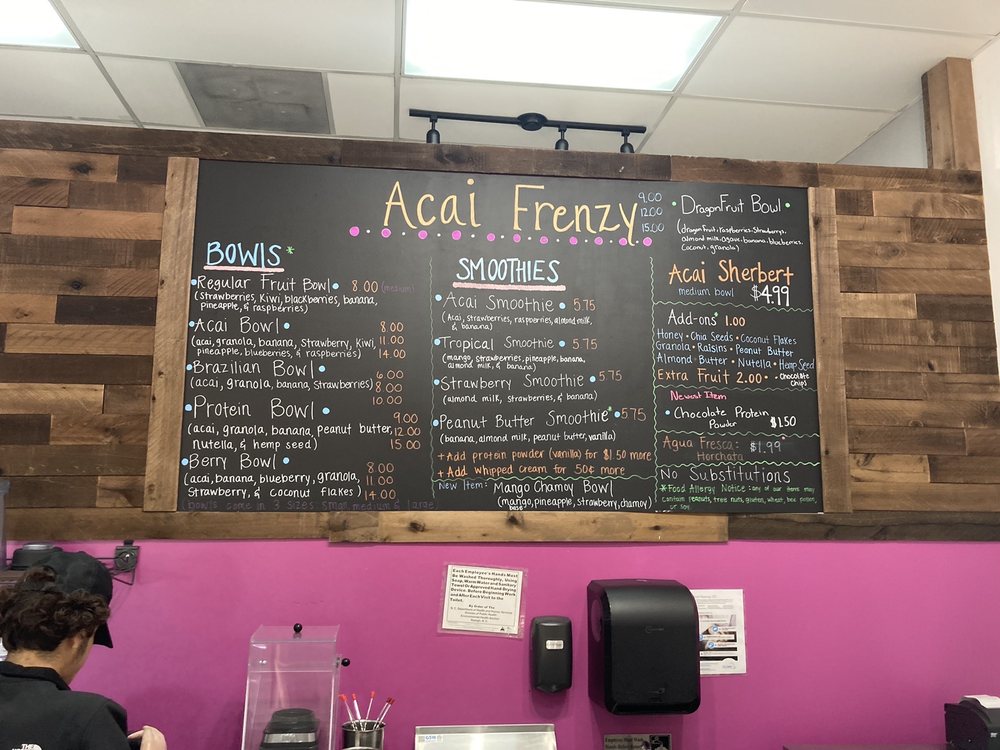 Acai Frenzy
BOWlS*
Regular Fruit Bowl • 8.00 (medium)
(strawberries, kiwi, blackberries, banana,
pineapple, & raspberries)
Acai Bowl • 8.00
(acai, granola, banana, strawberry, kiwi, 11.00
pineapple, blueberries, & raspberries) 14.00
Brazilian Bowl • 6.00
(acai, granola, banana, strawberries) 8.00
10.00
Protein Bowl • 9.00
(acai, granola, banana, peanut butter, 12.00
nutella, & hemp seed) 15.00
Berry Bowl • 8.00
(acai, banana, blueberry, granola, 11.00
strawberry, & coconut flakes) 14.00
(bowls come in 3 sizes small, medium & large)
SMOOTHIES
Acai Smoothie • 5.75
(Acai, strawberries, raspberries, almond milk,
& banana)
Tropical Smoothie • 5.75
(mango, strawberries, pineapple, banana,
almond milk, & banana)
Strawberry Smoothie • 5.75
(almond milk, strawberries, & banana)
Peanut Butter Smoothie* 5.75
(banana, almond milk, peanut butter, vanilla)
+Add protein powder (vanilla) for $1.50 more
+Add whipped cream for 50¢ more
New Item: Mango Chamoy Bowl
(mango, pineapple, strawberry, chamoy)
base
9.00
12.00
15.00
• DragonFruit Bowl •
(dragonfruit, raspberries, strawberrys,
almond milk, agave, banana, blueberries,
coconut, granola)
Acai Sherbert
medium bowl $4.99
Add-ons* 1.00
Honey • Chia Seeds • Coconut Flakes
Granola • Raisins • Peanut Butter
Almond Butter • Nutella • Hemp Seed
Extra Fruit 2.00 • • Chocolate
Chips
Newest Item
• Chocolate Protein
Powder $1.50
Agua Fresca: $1.99
Horchata
No Substitutions
*Food Allergy Notice: any of our items may
contain peanuts, tree nuts, gluten, wheat, bee pollen,
or soy.
Each Employee's Hands Must
Be Washed Thoroughly, Using
Soap, Warm Water and Sanitary
Towel Or Approved Hand-Drying
Device. Before Beginning Work
and After Each Visit to the
Toilet.
By Order of The
Raleigh, N.C.
THE